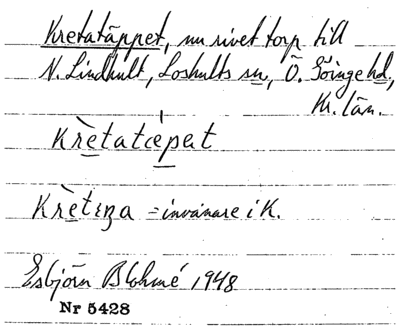 Kretatäppet, nu rivet torp till
N. Lindhult, Loshults sn, Ö. Göinge hd,
Kr. län.
Krètatεpət
Krètιŋa = invånare i K.
Esbjörn Blohmé 1948
Nr 5428